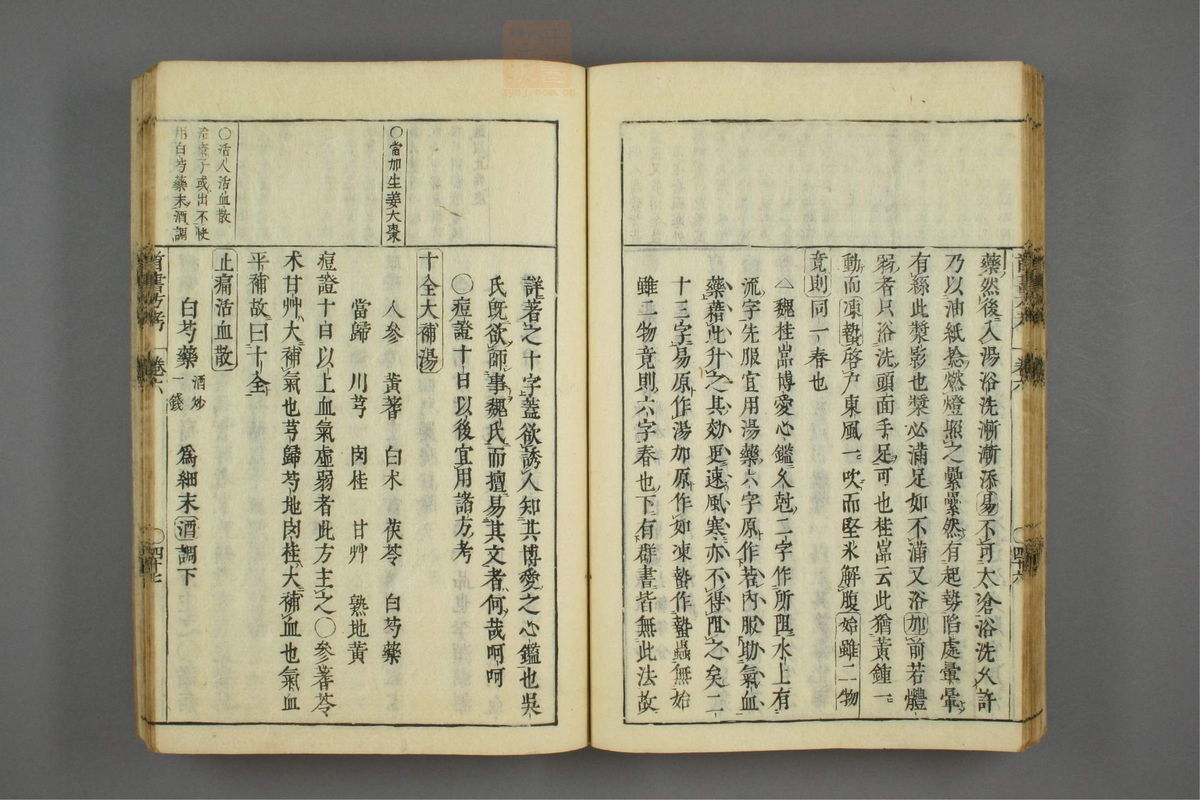 藥然後入湯浴洗漸漸添易不可太滄浴洗久許
乃以油紙捻燃燈照之纍纍然有起勢陷處暈暈
有絲此漿影也漿必滿足如不滿又浴加前若體
弱者只浴洗頭面手足可也桂嵓云此猶黃鍾一
動而凍蟄啓戶東風一吹而堅氷解腹始雖二物
竟則同一春也
魏桂嵓博愛心鑑久尅二字作所阻水上有
流字先服宜用湯藥六字原作若內服助氣血
藥藉此升之其効更速風寒亦不得阻之矣二
十三字易原作湯加原作如凍蟄作蟄蟲無始
雖二物竟則六字春也下有群書皆無此法故
詳著之十字蓋欲誘人知其博愛之心鑑也吳
氏旣欲師事魏氏而擅易其文者何哉呵呵
〇痘證十日以後宜用諸方考
十全大補湯
〇當加生姜大棗
人參 黃蓍 白朮 茯苓 白芍藥
當歸 川芎 肉桂 甘艸 熟地黃
痘證十日以上血氣虛弱者此方主之〇參蓍苓
朮甘艸大補氣也芎歸芍地肉桂大補血也氣血
平補故曰十全
止痛活血散
〇活人活血散
治瘡子或出不快
用白芍藥末酒調
白芍藥 酒炒一錢 爲細末酒調下
卷六
四十六
卷六
四十七